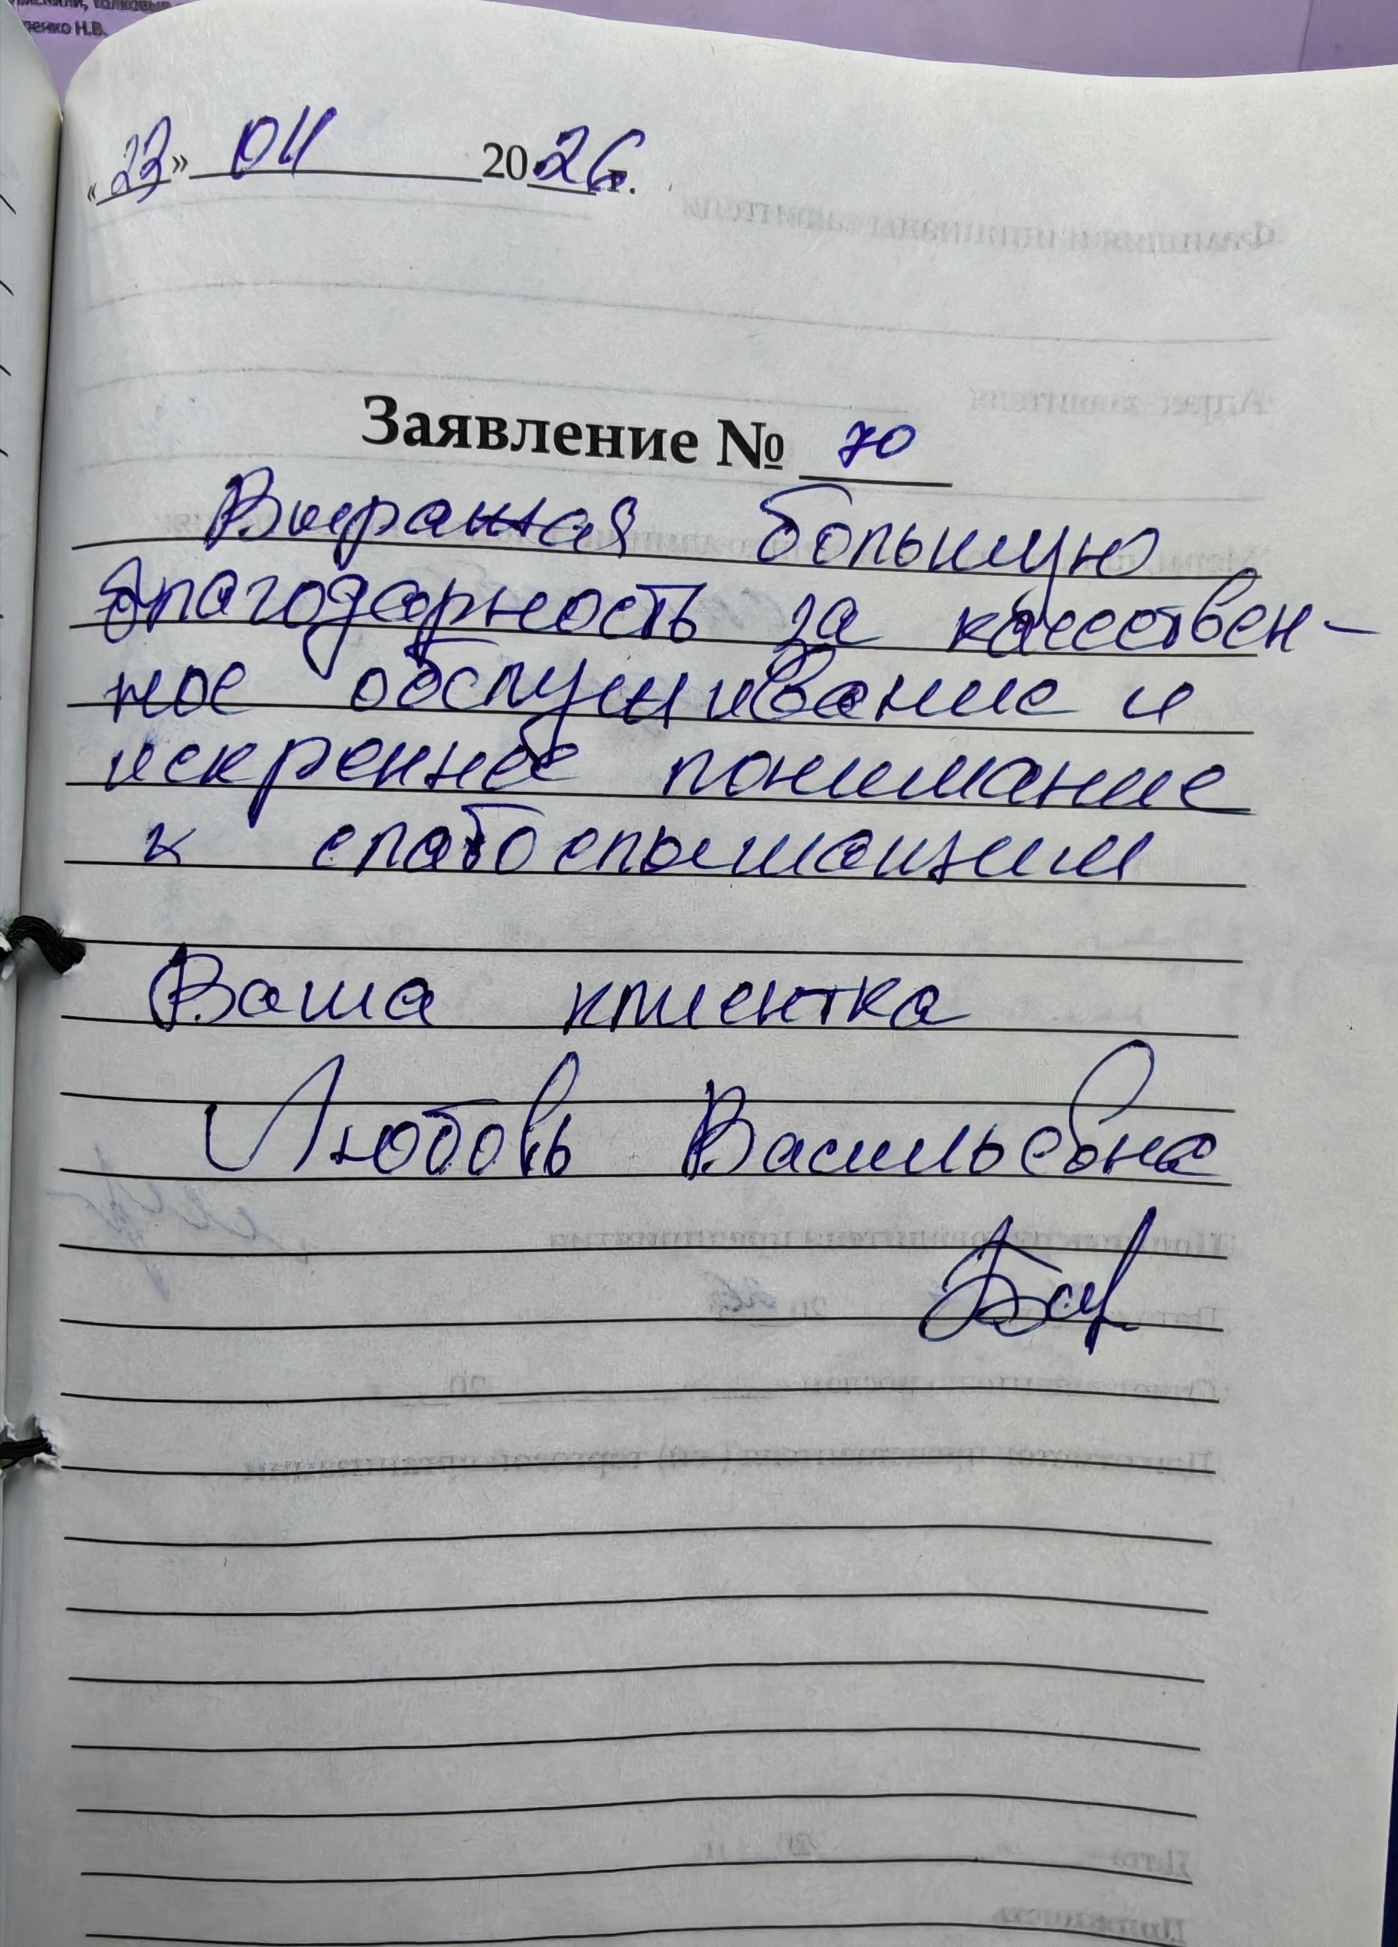 пенко Н.В.
«23» 04 2026 г.
Заявление № 70
Выражая большую
благодарность за качествен-
ное обслуживание и
искреннее понимание
к слабослышащим
Ваша клиентка
Любовь Васильевна